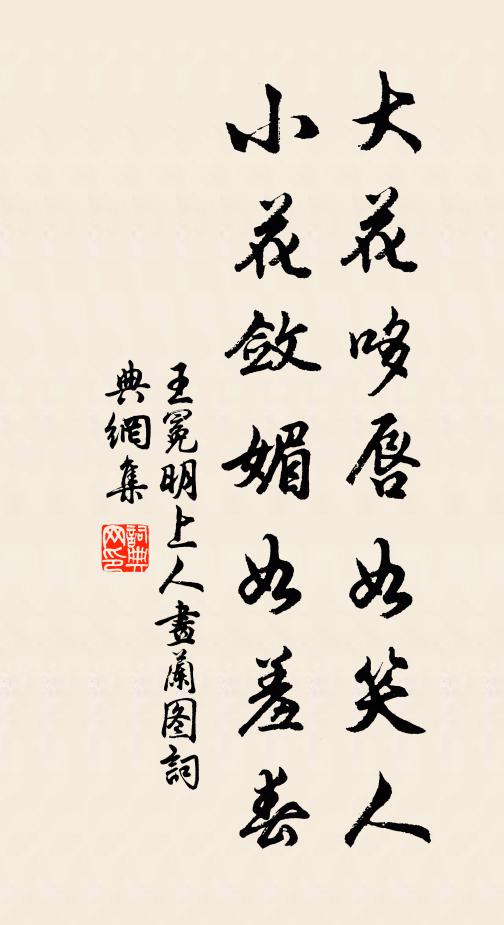 大花哆唇如笑人
小花斂媚如羞春
王冕明上人畫蘭图詞
典網集
詞典網印